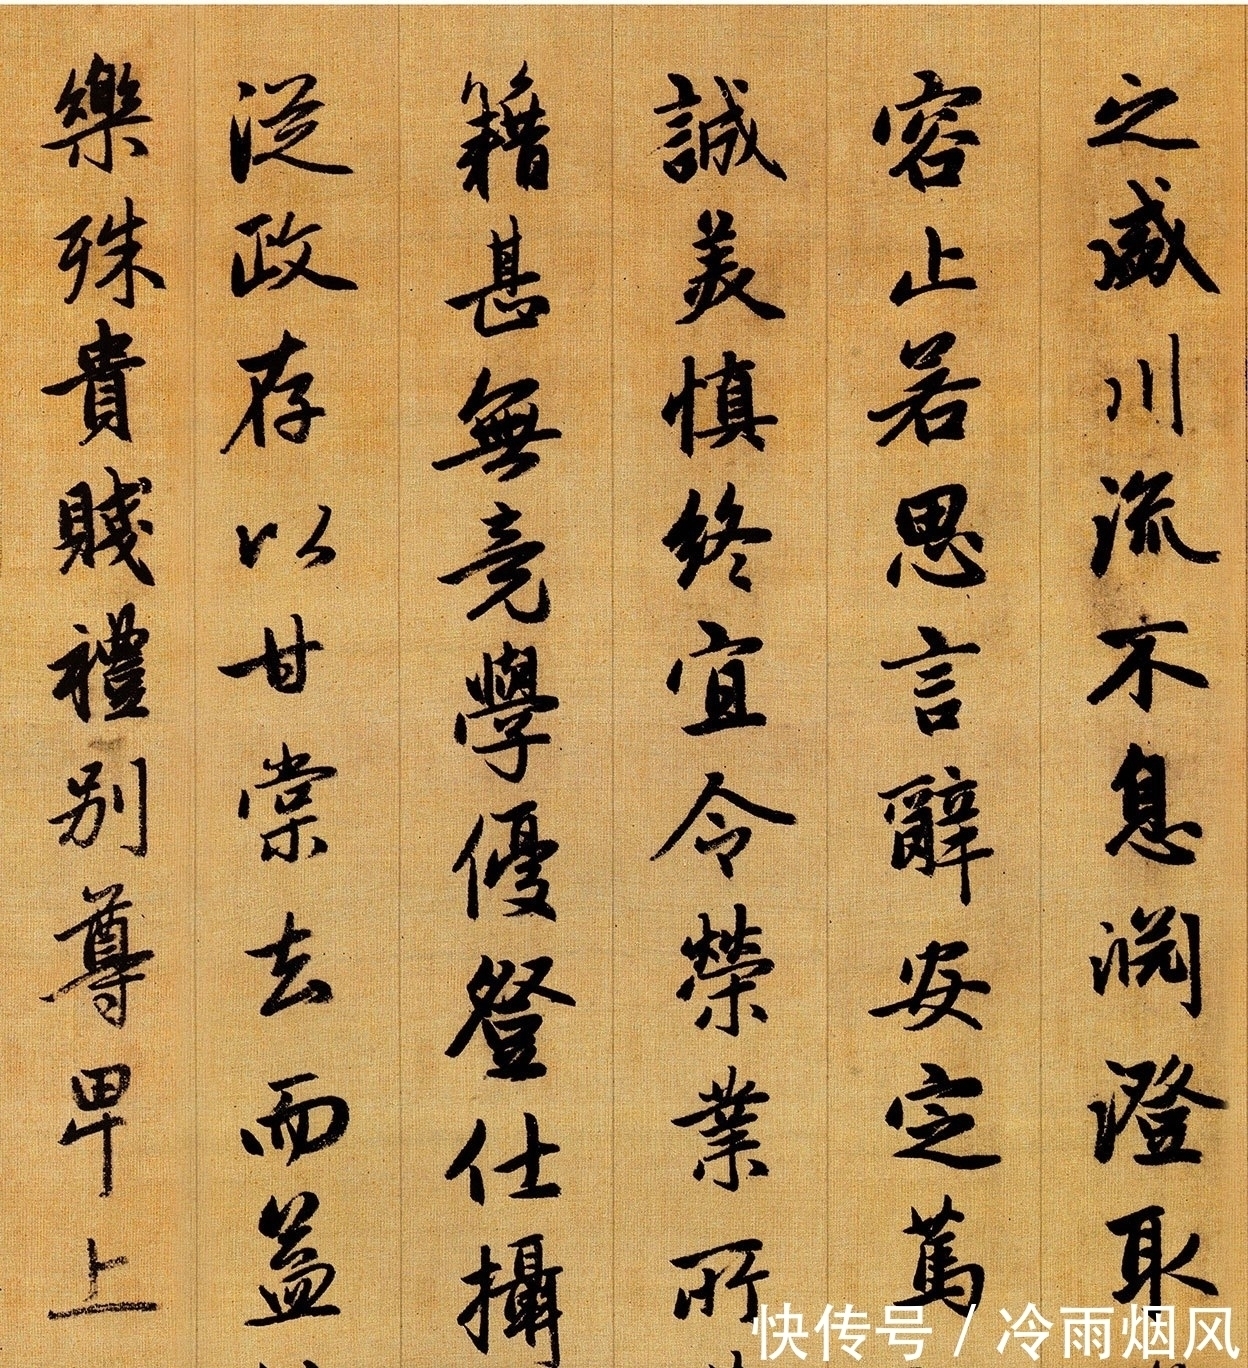 之盛川流不息淵澄取
容止若思言辭安定篤
誠美慎終宜令榮業所
籍甚無竟學優登仕攝
從政存以甘棠去而益
樂殊貴賤禮别尊卑上
快传号 / 冷雨烟风